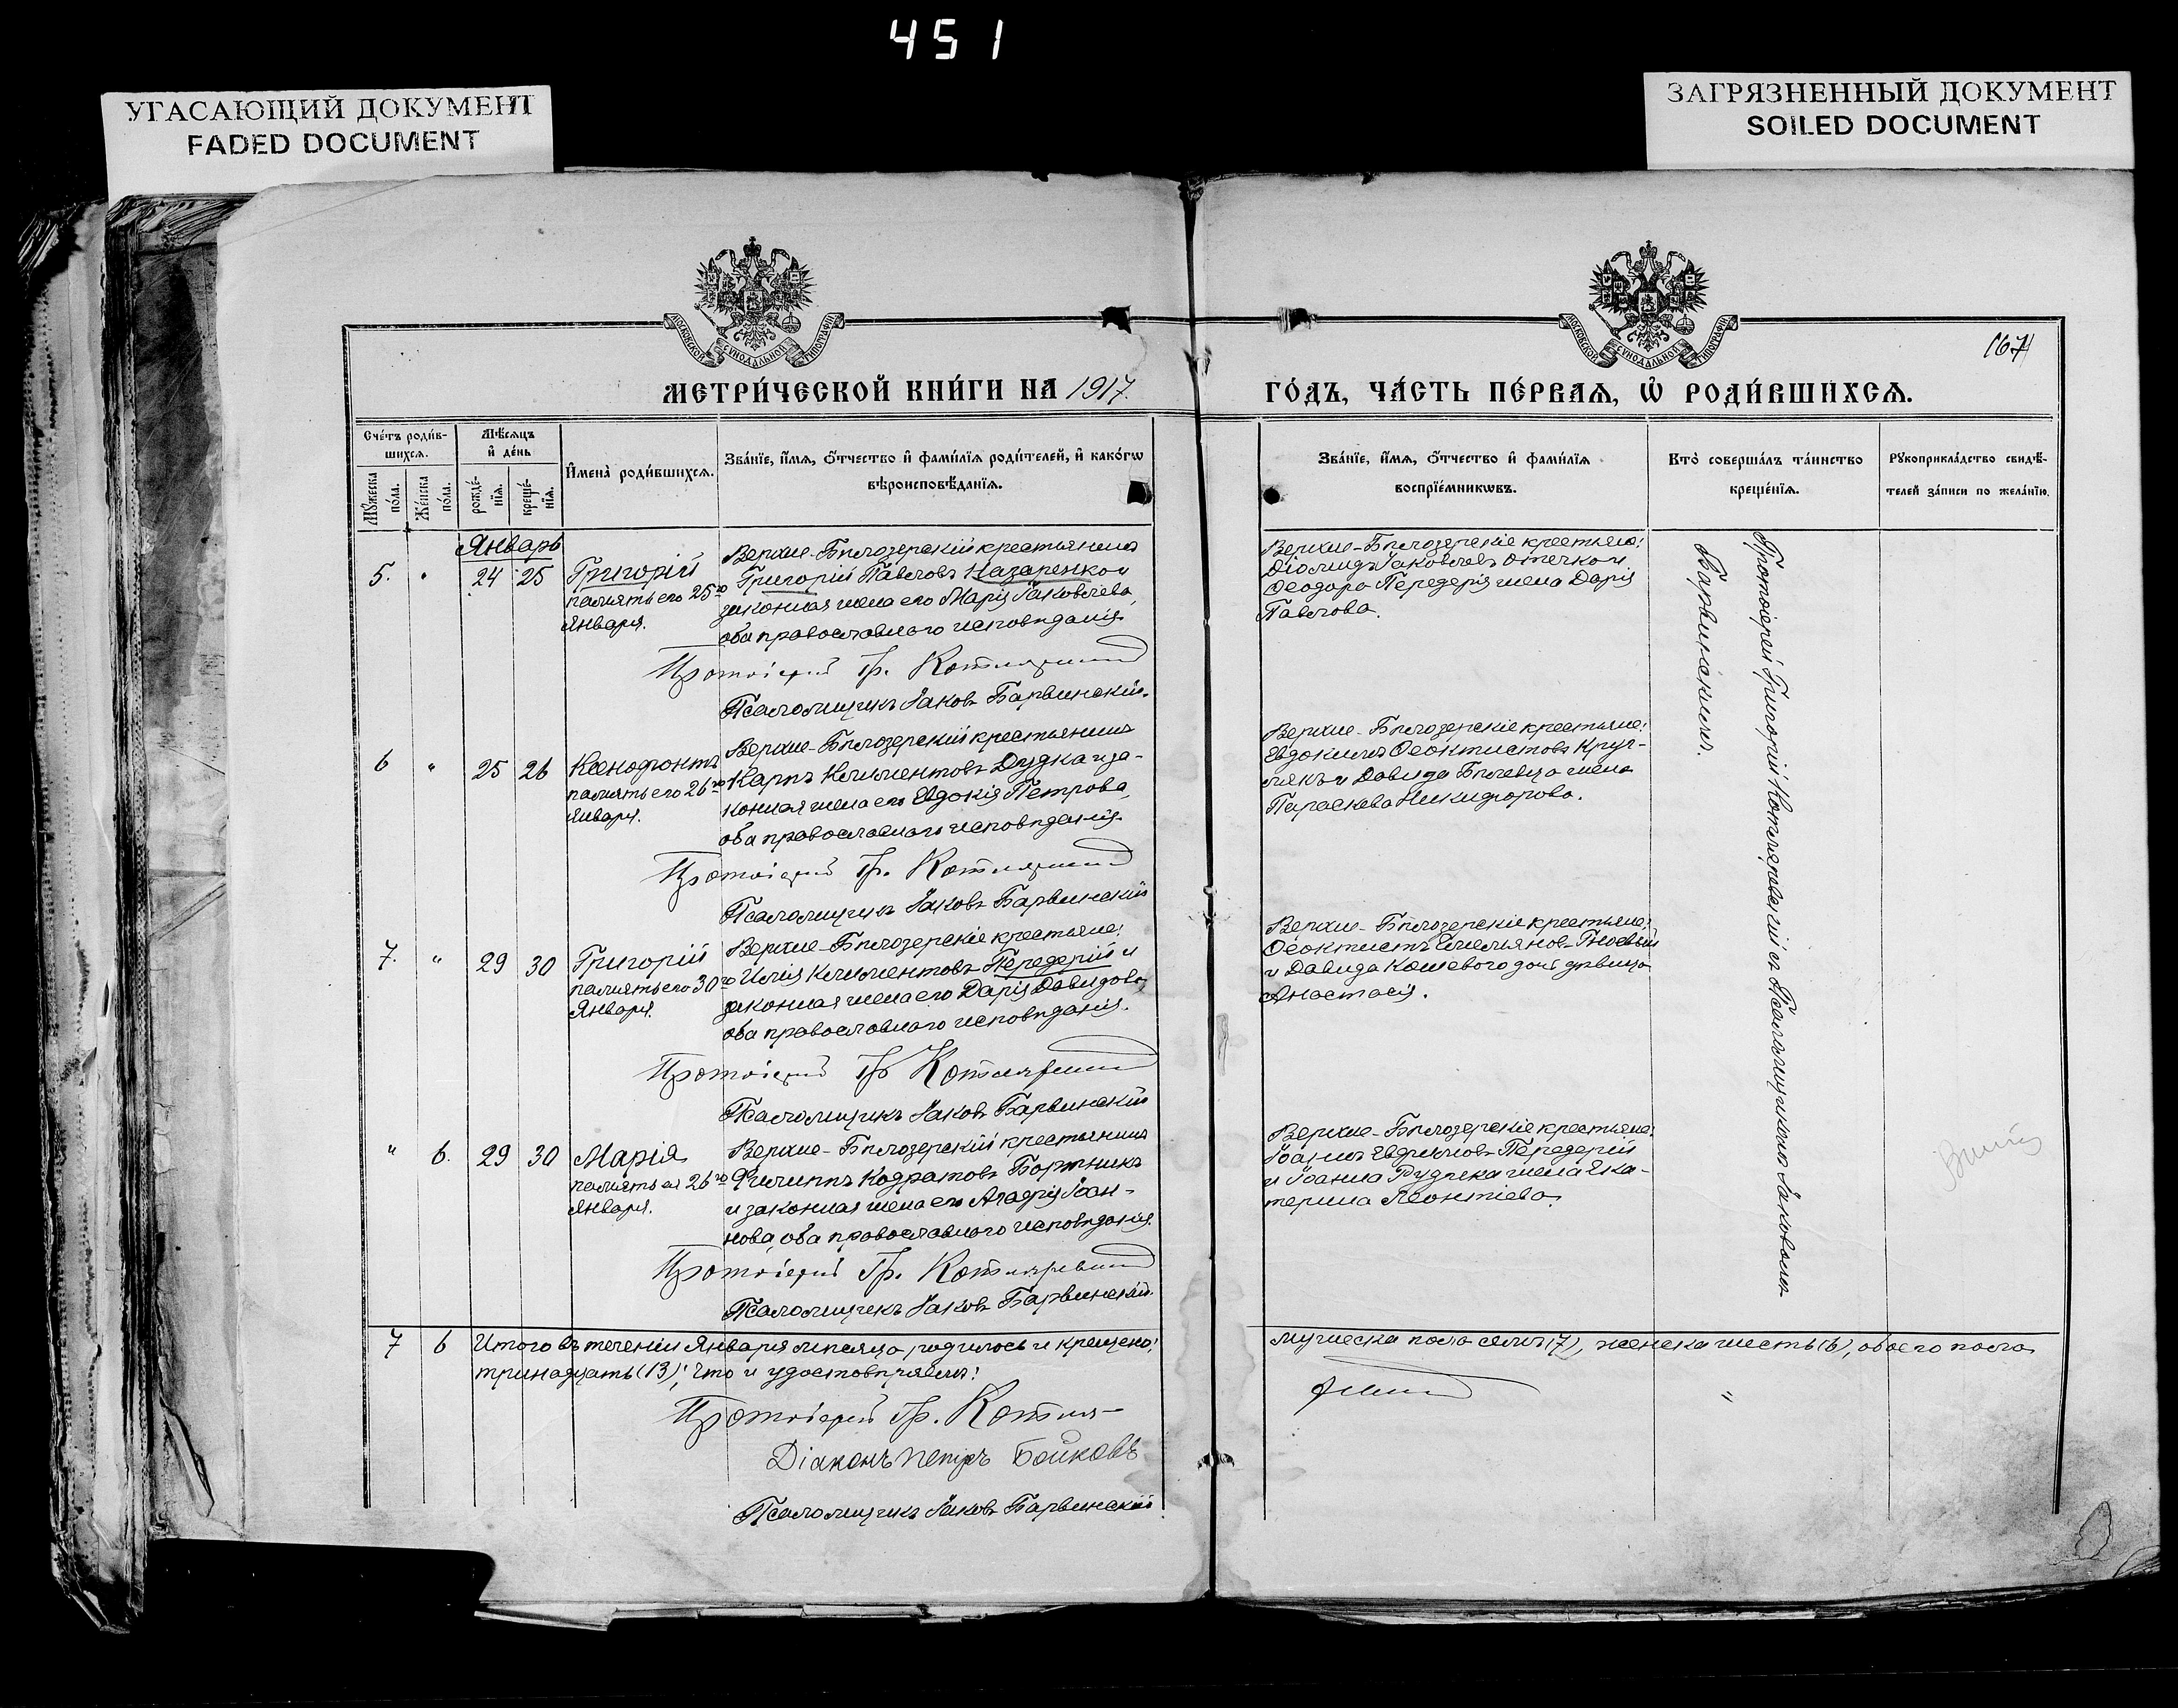 451
УГАСАЮЩИЙ ДОКУМЕНТ
FADED DOCUMENT
ЗАГРЯЗНЕННЫЙ ДОКУМЕНТ
SOILED DOCUMENT
МОСКОВСКОЙ СѴНОДАЛЬНОЙ ТИПОГРАФІИ
МОСКОВСКОЙ СѴНОДАЛЬНОЙ ТИПОГРАФІИ
167
МЕТРИ́ЧЕСКОЙ КНИ́ГИ НА 1917.
ГО́ДЪ, ЧА́СТЬ ПЕ́РВАѦ, Ѡ҆ РОДИ́ВШИХСѦ.
Сче́тъ роди́в-
шихсѧ.
Мꙋ́жеска по́ла.
Же́нска по́ла.
Мѣ́сѧцъ
и҆ де́нь
рожде́-
нїѧ.
креще́-
нїѧ.
И҆мена̀ роди́вшихсѧ.
Зва́нїе, и҆́мѧ, ѻ҆́тчество и҆ фами́лїѧ роди́телей, и҆ како́гѡ
вѣроисповѣ́данїѧ.
Зва́нїе, и҆́мѧ, ѻ҆́тчество и҆ фами́лїѧ
воспрїе́мникѡвъ.
Кто̀ соверша́лъ та́инство
креще́нїѧ.
Рꙋкоприкла́дство свидѣ́-
телей за́писи по жела́нїю.
Январь
5. " 24 25
Григорій
память его 25го
Января.
Верхне-Бѣлозерскій крестьянинъ
Григорій Павловъ Назаренко и
законная жена его Марія Іаковлева,
оба православнаго исповѣданія
Протоіерей Гр. Котляревскій
Псаломщикъ Іаковъ Барвинскій.
Верхне-Бѣлозерскіе крестьяне:
Діомидъ Іаковлевъ и
Ѳеодора Передерія жена Дарія
Павлова.
6 " 25 26
Ксенофонтъ
память его 26го
Января.
Верхне-Бѣлозерскій крестьянинъ
Карпъ Климентовъ Дудка и за-
конная жена его Евдокія Петрова,
оба православнаго исповѣданія
Протоіерей Гр. Котляревскій
Псаломщикъ Іаковъ Барвинскій
Верхне-Бѣлозерскіе крестьяне:
Евдокимъ Ѳеоктистовъ Круг-
лякъ и Давида жена
Параскева Никифорова.
7. " 29 30
Григорій
память его 30го
Января.
Верхне-Бѣлозерскіе крестьяне:
Илія Климентовъ Передерій и
законная жена его Дарія Давидова,
оба православнаго исповѣданія.
Протоіерей Гр Котляревскій
Псаломщикъ Іаковъ Барвинскій
Верхне-Бѣлозерскіе крестьяне:
Ѳеоктистъ Емельяновъ Гноевый
и Давида Кошевого дочь дѣвица
Анастасія.
" 6. 29 30
Марія
память ея 26го
Января.
Верхне-Бѣлозерскій крестьянинъ
Филиппъ Кодратовъ Бортникъ
и законная жена его Агафія Іоан-
нова, оба православнаго исповѣданія.
Протоіерей Гр. Котляревскій
Псаломщикъ Іаковъ Барвинскій.
Верхне-Бѣлозерскіе крестьяне:
Іоаннъ Передерій
и Іоанна жена Ека-
терина Леонтіева.
Протоіерей Григорій Котляревскій съ Псаломщикомъ Іаковомъ
Барвинскимъ.
7 6 Итого въ теченіи Января мѣсяца родилось и крещено:
мужеска пола семь (7), женска шесть (6), обоего пола
тринадцать (13); что и удостовѣряемъ:
Протоіерей Гр. Котля-
ревскій
Діаконъ Петръ Бойковъ
Псаломщикъ Іаковъ Барвинскій